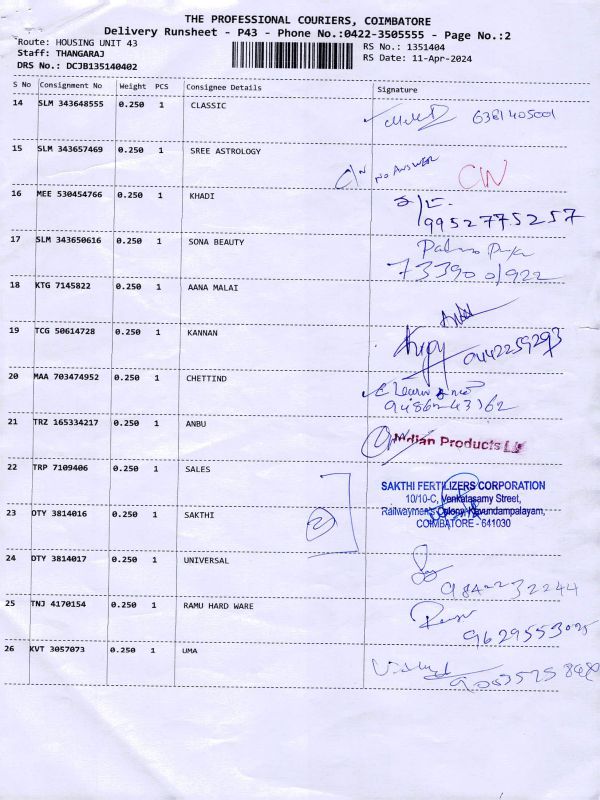 THE PROFESSIONAL COURIERS, COIMBATORE
Delivery Runsheet - P43 - Phone No.:0422-3505555 - Page No.:2
Route: HOUSING UNIT 43
RS No.: 1351404
Staff: THANGARAJ
RS Date: 11-Apr-2024
DRS No.: DCJB135140402
S No Consignment No Weight PCS Consignee Details Signature
14 SLM 343648555 0.250 1 CLASSIC
6381405001
15 SLM 343657469 0.250 1 SREE ASTROLOGY
NO ANSWER
CN
16 MEE 530454766 0.250 1 KHADI
9952775257
17 SLM 343650616 0.250 1 SONA BEAUTY
7339001922
18 KTG 7145822 0.250 1 AANA MALAI
19 TCG 50614728 0.250 1 KANNAN
9442259293
20 MAA 703474952 0.250 1 CHETTIND
9486243362
21 TRZ 165334217 0.250 1 ANBU
Indian Products
22 TRP 7109406 0.250 1 SALES
SAKTHI FERTILIZERS CORPORATION
10/10-C, Venkatasamy Street,
Railwaymen's Colony, Kavundampalayam,
COIMBATORE - 641030
23 DTY 3814016 0.250 1 SAKTHI
2
24 DTY 3814017 0.250 1 UNIVERSAL
9842232244
25 TNJ 4170154 0.250 1 RAMU HARD WARE
26 KVT 3057073 0.250 1 UMA